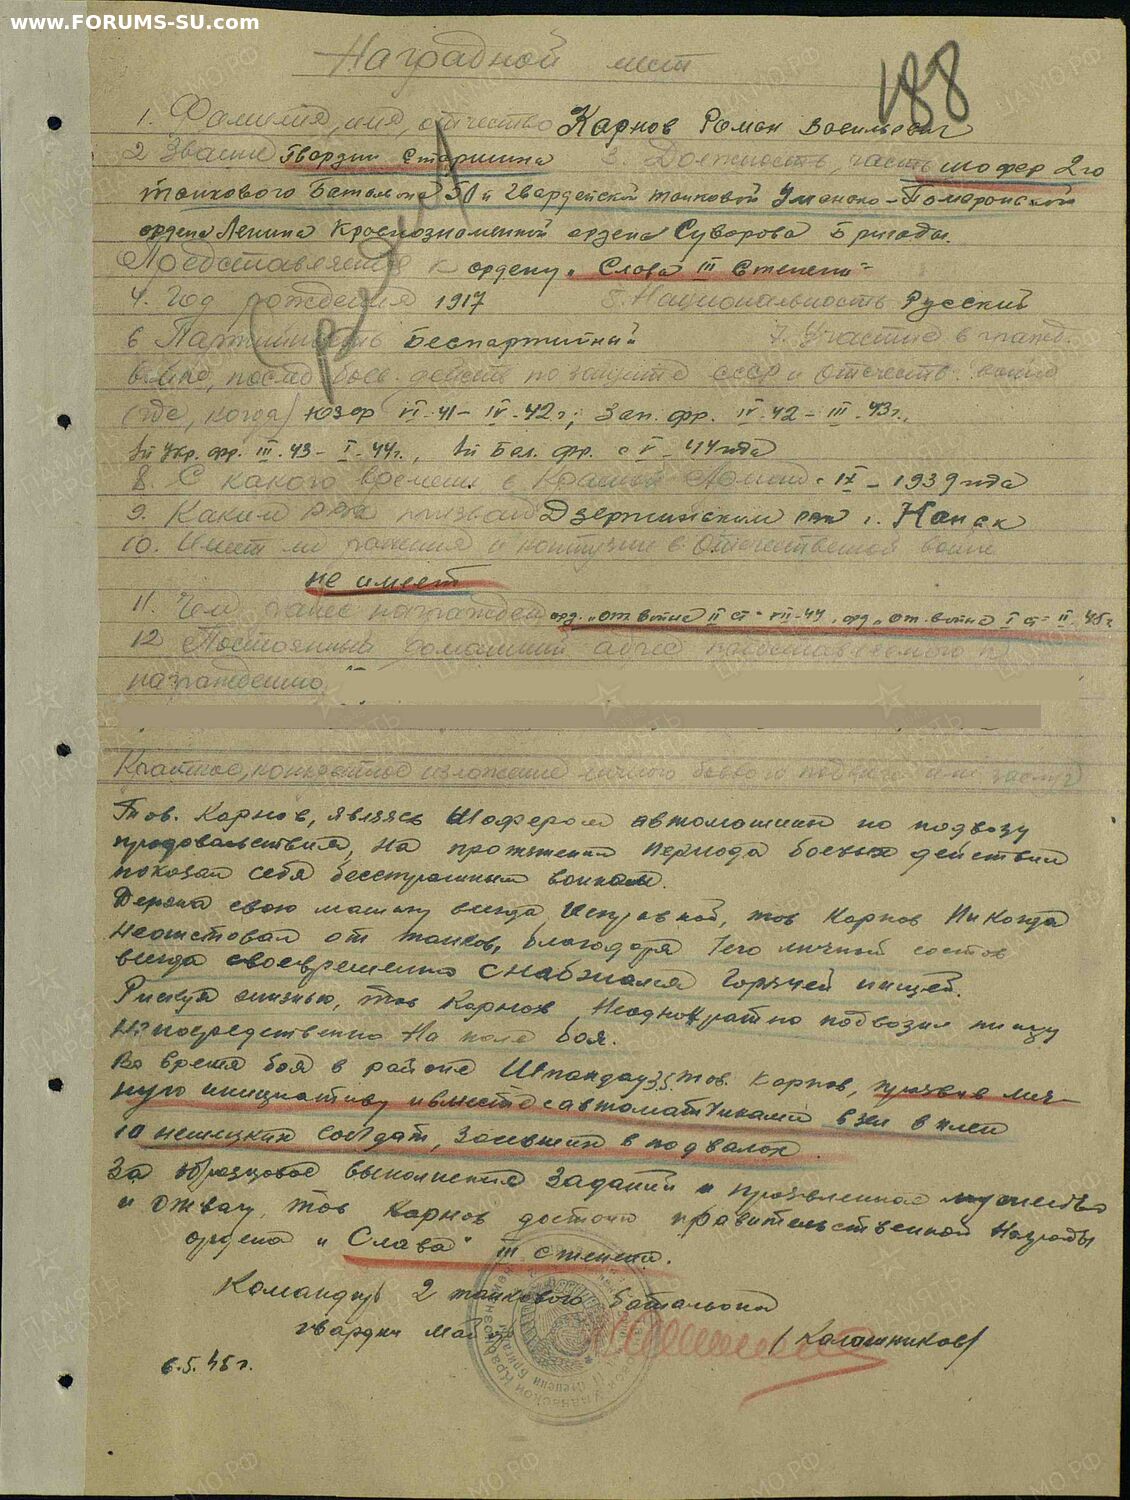 www.FORUMS-SU.com
188
Наградной лист
1. Фамилия, имя, отчество Карнов Роман Васильевич
2 Звание Гвардии Старшина 3. Должность, часть шофер 2го
танкового Батальона 50й Гвардейской танковой Уманско-Померанской
ордена Ленина Краснознаменной ордена Суворова Бригады.
Представляется к ордену „Слава III Степени"
4. Год рождения 1917 5. Национальность Русский
6 Партийность Беспартийный 7. Участие в гражд.
войне, послед. боев. действ. по защите СССР и отечеств. войне
(где, когда) ЮЗФр VI-41-IV-42г; Зап. фр. IV-42-III-43г.,
Укр. фр. III-43-I-44г., Бел. фр. с V-44 года
8. С какого времени в Красной Армии с IX-1939 года
9. Каким РВК призван Дзержинским рвк г. Канск
10. Имеет ли ранения и контузии в Отечественной войне
не имеет
11. Чем ранее награжден орд. „от. войны II ст" VII-44, орд „от. войны I ст" II-45г
12 Постоянный домашний адрес представляемого к
награждению
Краткое, конкретное изложение личного боевого подвига или заслуг
Тов. Карнов, являясь Шофером автомашины по подвозу
продовольствия, на протяжении периода боевых действий
показал себя бесстрашным воином.
Держа свою машину всегда Исправной, тов Карнов Никогда
Неотставал от танков, благодаря чего личный состав
всегда своевременно снабжался Горячей пищей.
Рискуя жизнью, тов Карнов Неоднократно подвозил пищу
Непосредственно На поле боя.
Во время боя в районе Шпандау тов. Карнов, проявив лич-
ную инициативу и вместе с автоматчиками взял в плен
10 немецких солдат, засевших в подвалах.
За образцовое выполнение Заданий и проявленное мужество
и отвагу, тов Карнов достоин правительственной Награды
ордена „Слава" III степени.
Командир 2 танкового Батальона
гвардии Майор /Калашников/
6.5.45г.